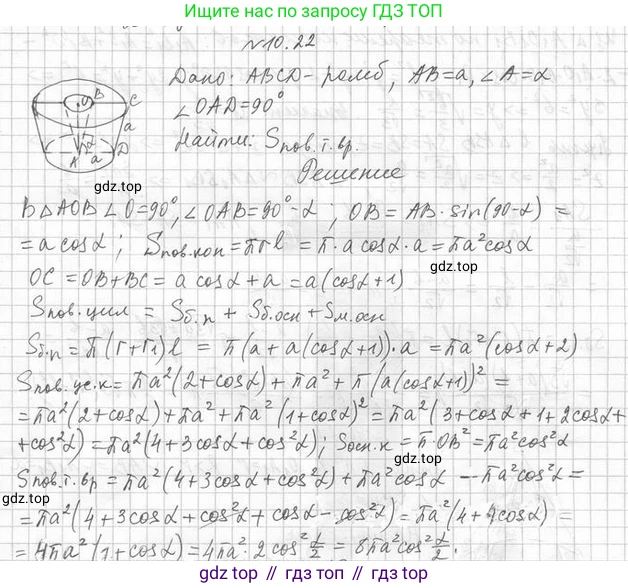 Ищите нас по запросу ГДЗ ТОП
№10.22
Дано: ABCD - ромб, AB=a, ∠A=α
∠OAD=90°
Найти: Sпов.т.вр.
Решение
O B C a α A a D
gdz.top
В △AOB ∠O=90°, ∠OAB=90°-α; OB=AB·sin(90-α)=
=a cosα; Sпов.кон=πrl=π·a cosα·a=πa²cosα
gdz.top
OC=OB+BC=a cosα+a=a(cosα+1)
Sпов.цил=Sб.п+Sб.осн+Sм.осн
Sб.п=π(r+r₁)l=π(a+a(cosα+1))·a=πa²(cosα+2)
Sпов.ус.к=πa²(2+cosα)+πa²+π(a(cosα+1))²=
=πa²(2+cosα)+πa²+πa²(1+cosα)²=πa²(3+cosα+1+2cosα+
+cos²α)=πa²(4+3cosα+cos²α); Sосн.к=π·OB²=πa²cos²α
Sпов.т.вр=πa²(4+3cosα+cos²α)+πa²cosα-πa²cos²α=
gdz.top
=πa²(4+3cosα+cos²α+cosα-cos²α)=πa²(4+4cosα)=
=4πa²(1+cosα)=4πa²·2cos²α/2=8πa²cos²α/2.
gdz.top
gdz.top // gdz.top // gdz.top